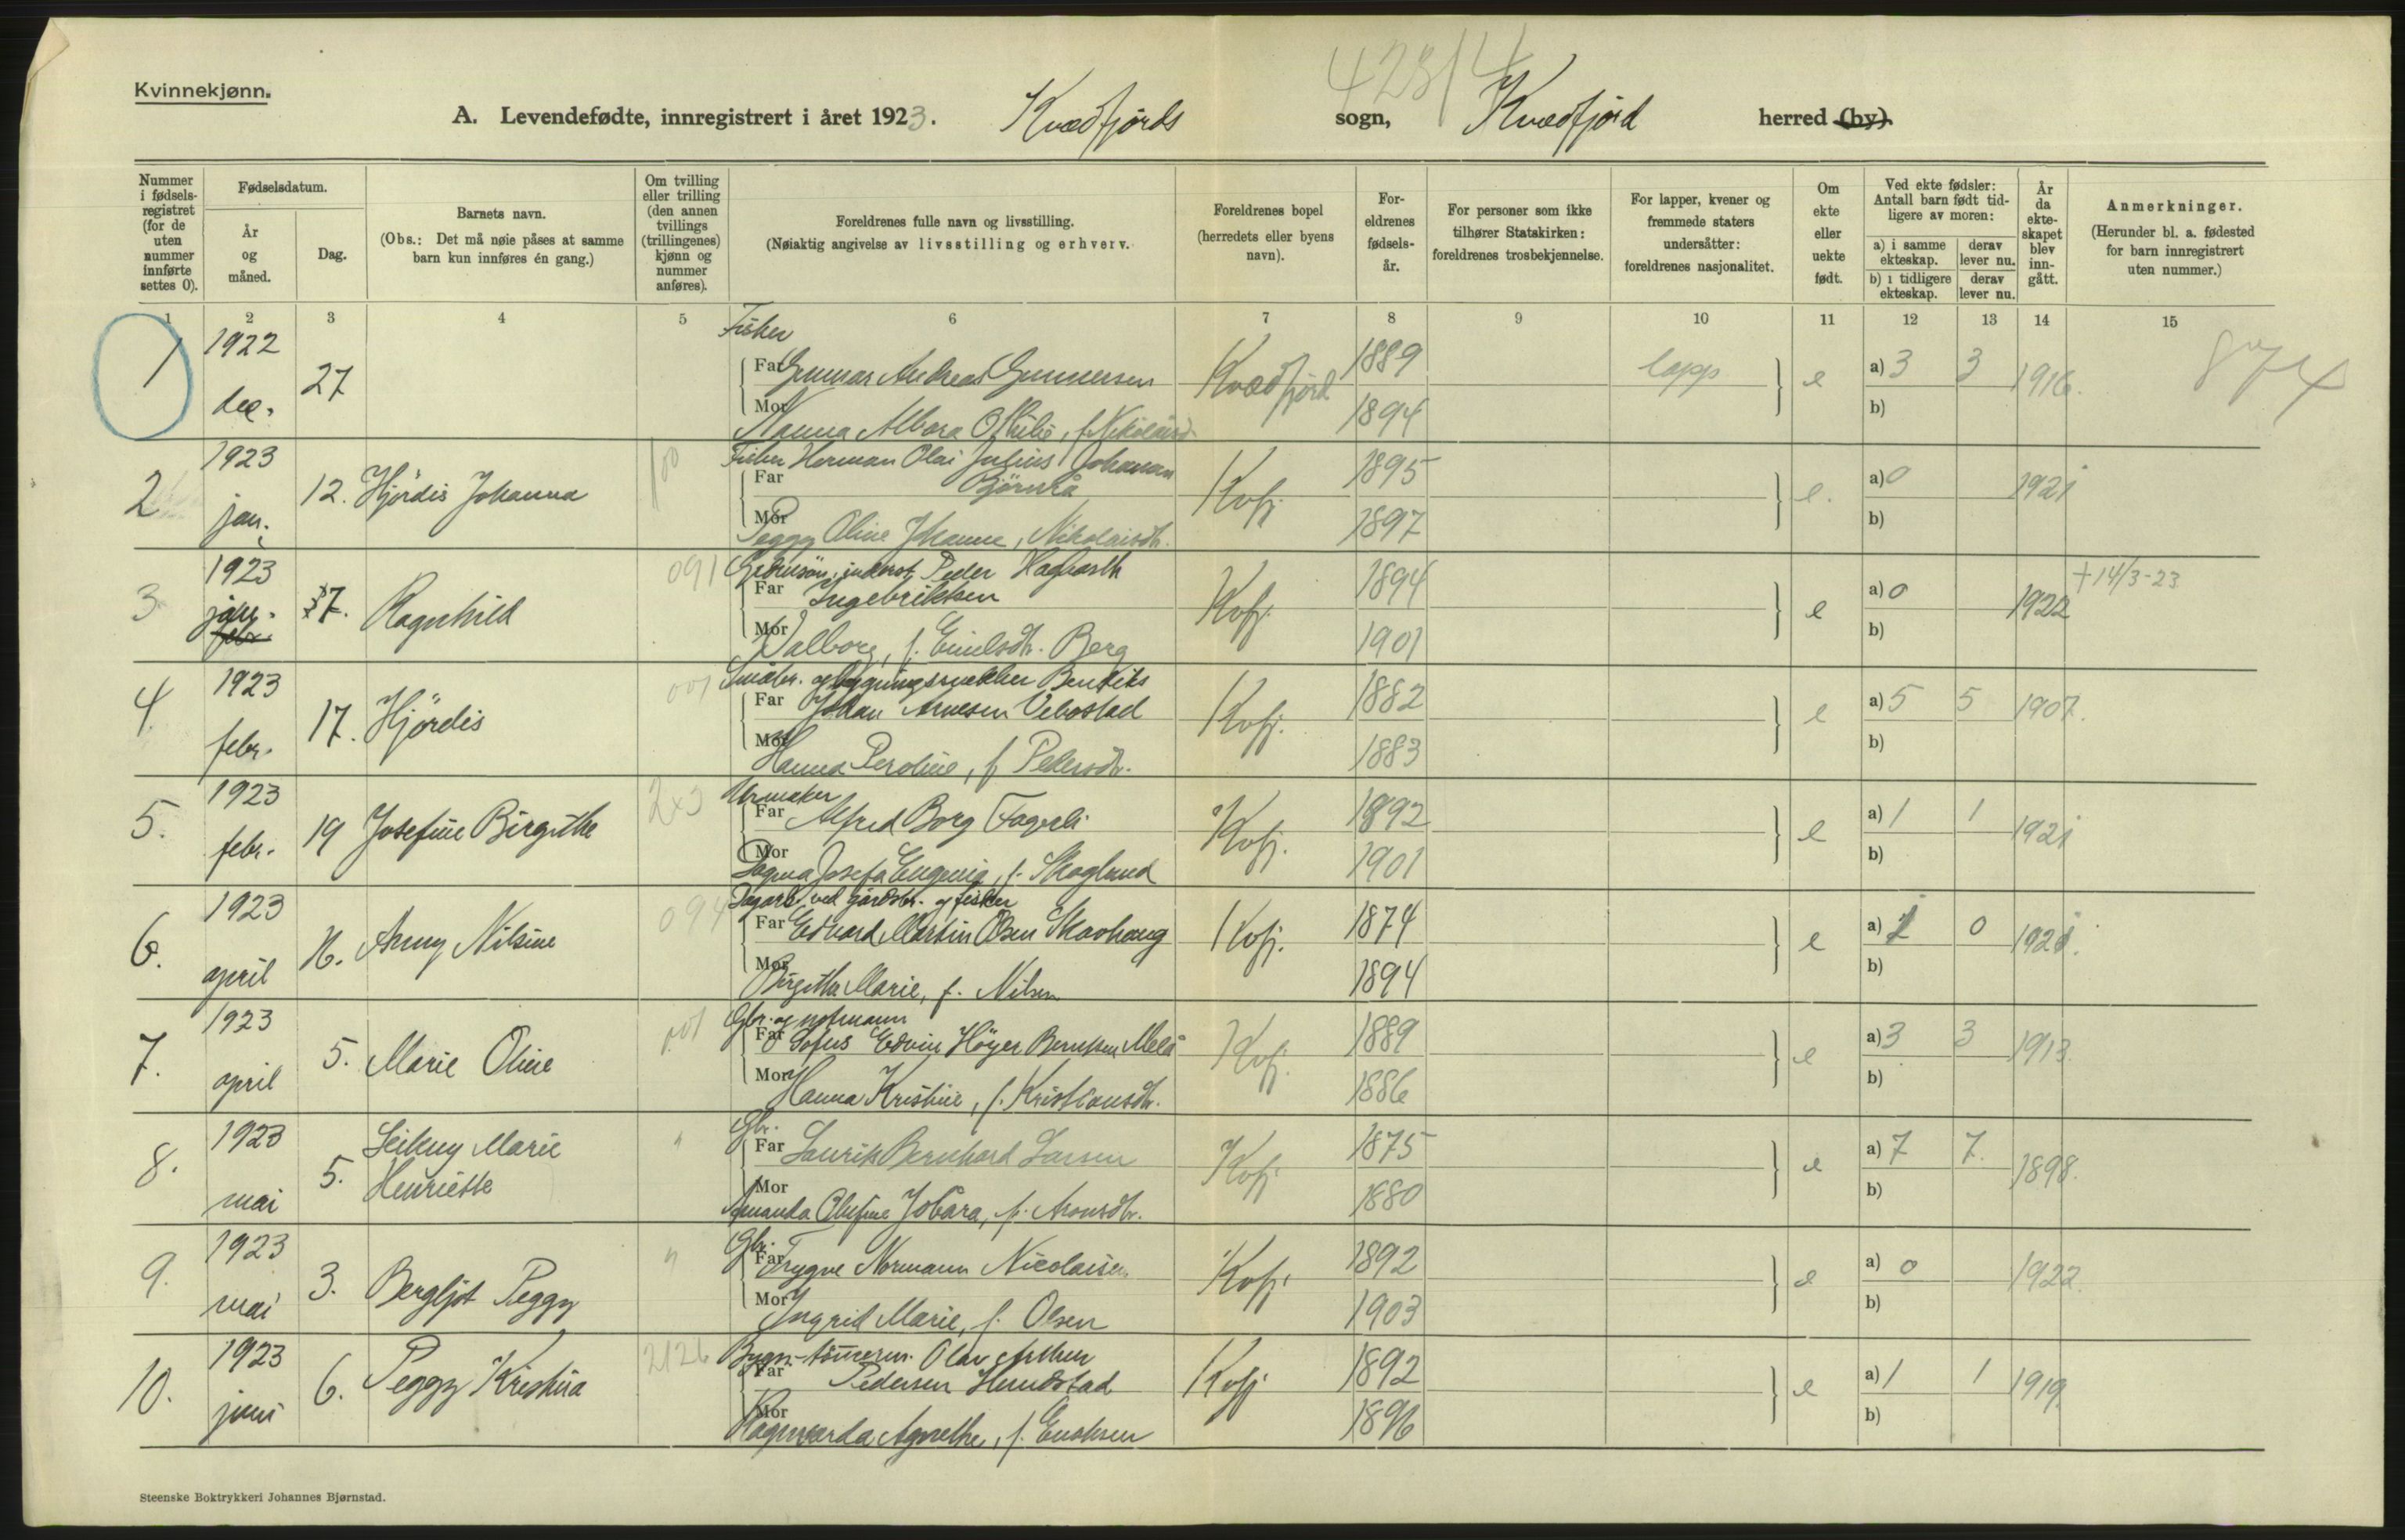 Kvinnekjønn.
A. Levendefødte, innregistrert i året 1923. Kvædfjords sogn, Kvædfjord herred (by).
423/4
Nummer i fødselsregistret (for de uten nummer innførte settes 0).
Fødselsdatum.
År og måned.
Dag.
Barnets navn.
(Obs.: Det må nøie påses at samme barn kun innføres én gang.)
Om tvilling eller trilling (den annen tvillings (trillingenes) kjønn og nummer anføres).
Foreldrenes fulle navn og livsstilling.
(Nøiaktig angivelse av livsstilling og erhverv.
Foreldrenes bopel (herredets eller byens navn).
Foreldrenes fødselsår.
For personer som ikke tilhører Statskirken: foreldrenes trosbekjennelse.
For lapper, kvener og fremmede staters undersåtter: foreldrenes nasjonalitet.
Om ekte eller uekte født.
Ved ekte fødsler: Antall barn født tidligere av moren:
a) i samme ekteskap.
derav lever nu.
b) i tidligere ekteskap.
derav lever nu.
År da ekteskapet blev inngått.
Anmerkninger.
(Herunder bl. a. fødested for barn innregistrert uten nummer.)
1 2 3 4 5 6 7 8 9 10 11 12 13 14 15
1 1922 des. 27
Fisker
Far Gunnar Andreas Gunnersen Kvædfjord 1889 lapp e a) 3 3 1916.
Mor Nanna Albora Othilie, f. Nikolaisd. 1894 b)
2 1923 jan. 12. Hjördis Johanna
Fisker Herman Olai Julius Johansen
Far Björnrå Kvfj. 1895 e. a) 0 1921
Mor Peggy Oline Johanne, Nikolaisdtr. 1897 b)
3 1923 jan. febr. 7. Ragnhild 091
Gårdbrusön, inderst, Peder Hagbarth
Far Ingebriktsen Kvfj. 1894 e a) 0 1922 +14/3-23
Mor Valborg, f. Emilsdtr. Berg 1901 b)
4. 1923 febr. 17. Hjördis 001
Småbr. og bygningssnekker Bendiks
Far Johan Arnesen Vebostad Kvfj. 1882 e a) 5 5 1907.
Mor Hanna Peroline, f. Pedersdtr. 1883 b)
5. 1923 febr. 19 Josefine Birgithe
Urmaker
Far Alfred Borg Fagerli Kvfj. 1892 e a) 1 1 1921
Mor Dagna Josefa Eugenia, f. Skoglund 1901 b)
6. 1923 april 16. Anny Nilsine 094
Dagarb. ved gårdsbr. og fisker
Far Edvard Martin Olsen Skavhaug Kvfj. 1874 e a) 1 0 1920.
Mor Birgitha Marie, f. Nilsen 1894 b)
7. 1923 april 5. Marie Oline 001
Gbr. og notmann
Far Sofus Edvin Höyer Berntsen Melå Kvfj. 1889 e a) 3 3 1913.
Mor Hanna Kristine, f. Kristiansdtr. 1886 b)
8. 1923 mai 5. Leikny Marie Henriette "
Gbr.
Far Laurits Bernhard Larsen Kvfj. 1875 e a) 7 7. 1898.
Mor Amanda Olufine Jobara, f. Aronsdtr. 1880 b)
9. 1923 mai 3. Bergljot Peggy "
Gbr.
Far Trygve Normann Nicolaisen Kvfj. 1892 e a) 0 1922.
Mor Ingrid Marie, f. Olsen 1903 b)
10. 1923 juni 6. Peggy Kristina 2126
Bygn.-tömrerm. Olav Arthur
Far Pedersen Hundstad Kvfj. 1892 e a) 1 1 1919.
Mor Ragnvarda Agnethe, f. Enoksen 1896 b)
Steenske Boktrykkeri Johannes Bjørnstad.